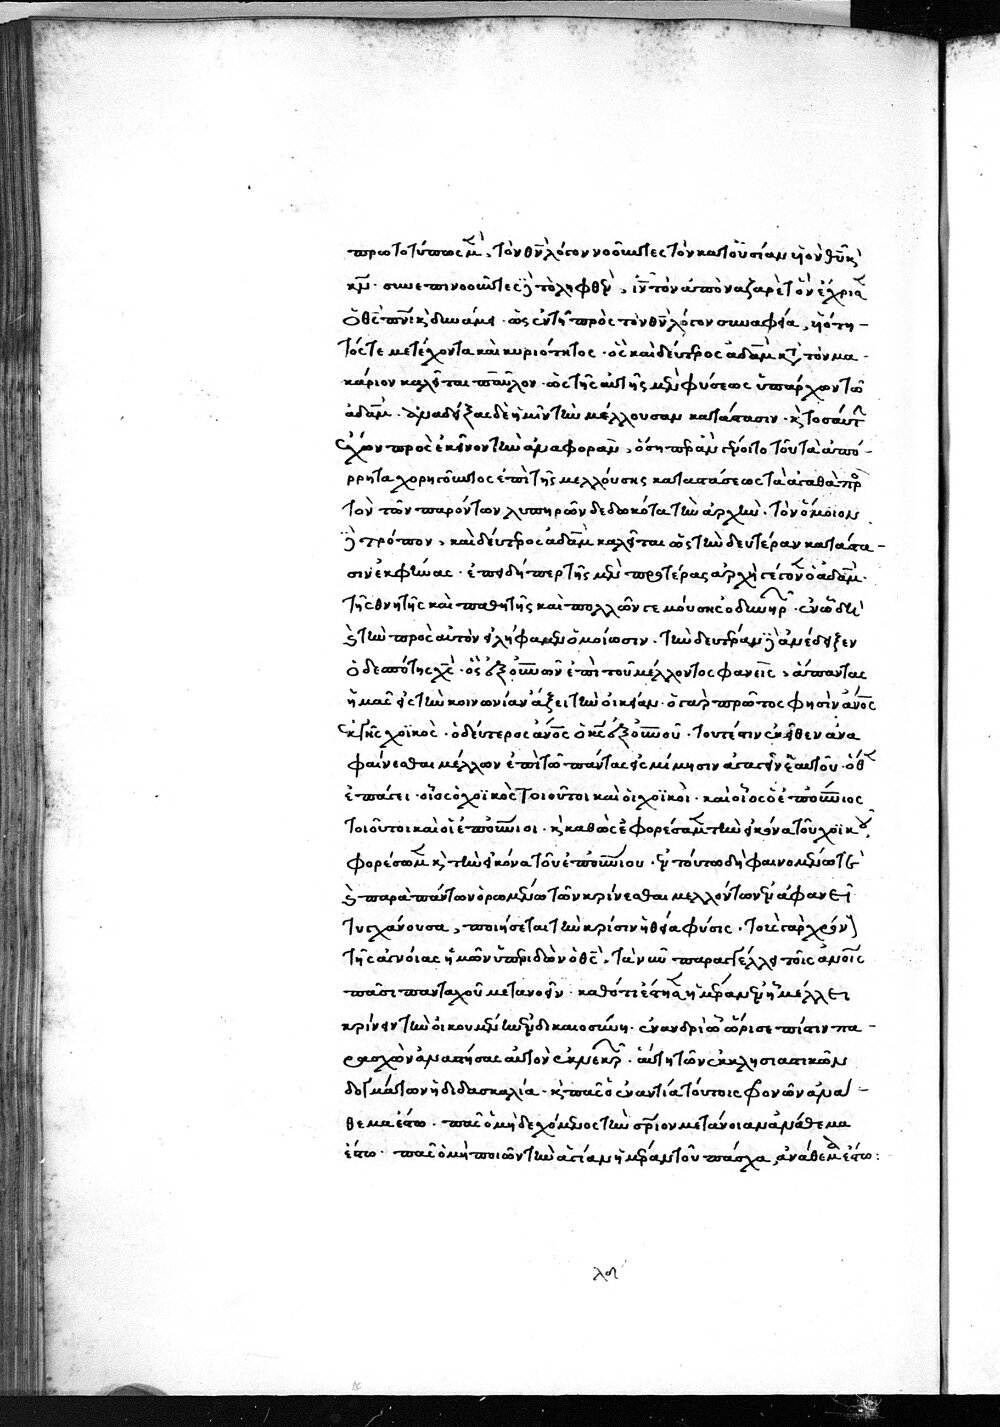 πρωτοτύπως μὲν, τὸν θν λόγον νοοῦντες τὸν κατ' οὐσίαν υἱὸν θυ κὶ
κν· συνεπινοοῦντες δὲ τὸ ληφθὲν, ιν τὸν ἀπὸ ναζαρὲτ ὃν ἔχρισεν
ὁ θς πνι κὶ δυνάμει· ὡς ἐν τῆ πρὸς τὸν θν λόγον συναφεία, υἱότη-
τός τε μετέχοντα καὶ κυριότητος· ὃς καὶ δεύτερος ἀδὰμ κατὰ τὸν μα-
κάριον καλεῖται παῦλον· ὡς τῆς αὐτῆς μὲν φύσεως ὑπάρχων τῶ
ἀδάμ· ἀναδείξας δὲ ἡμῖν τὴν μέλλουσαν κατάστασιν· κὶ τοσαύτην
ἔχων πρὸς ἐκεῖνον τὴν διαφορὰν, ὅση περ ἂν γένοιτο τοῦ τὰ ἀπό-
ρρητα χορηγοῦντος ἐπὶ τῆς μελλούσης καταστάσεως τὰ ἀγαθὰ πρὸς
τὸν τῶν παρόντων λυπηρῶν δεδωκότα τὴν ἀρχήν· τὸν ὅμοιον
δὲ τρόπον, καὶ δεύτερος ἀδὰμ καλεῖται ὡς τὴν δευτέραν κατάστα-
σιν ἐκφήνας· ἐπειδήπερ τῆς μὲν προτέρας ἀρχὴ γέγονεν ὁ ἀδὰμ·
τῆς θνητῆς καὶ παθητῆς καὶ πολλῶν γεμούσης ὀδυνηρῶν· ἐν ὧ δὴ
κὶ τὴν πρὸς αὐτὸν εἰλήφαμεν ὁμοίωσιν· τὴν δευτέραν δὲ ἀνέδειξεν
ὁ δεσπότης χς· ὃς ἐξ οὐνῶν ἐπὶ τοῦ μέλλοντος φανεὶς, ἅπαντας
ἡμᾶς εἰς τὴν κοινωνίαν ἄξει τὴν οἰκείαν· ὁ γὰρ πρῶτος φησὶν ἄνος
ἐκ γῆς χοϊκὸς· ὁ δεύτερος ἄνος ὁ κς ἐξ οὐνοῦ· τουτέστιν ἐκεῖθεν ἀνα
φαίνεσθαι μέλλων ἐπὶ τῶ πάντας εἰς μίμησιν ἀγαγεῖν ἑαυτοῦ· ὅθεν
ἐπάγει· οἷος ὁ χοϊκὸς τοιοῦτοι καὶ οἱ χοϊκοὶ· καὶ οἷος ὁ ἐπουνιος
τοιοῦτοι καὶ οἱ ἐπουνιοι· κὶ καθὼς ἐφορέσαμεν τὴν εἰκόνα τοῦ χοϊκοῦ,
φορέσωμεν κὶ τὴν εἰκόνα τοῦ ἐπουνίου· ἐν τούτω δὴ φαινομένω τε
κὶ παρὰ πάντων ὁρωμένω τῶν κρίνεσθαι μελλόντων ἐν ἀφανεῖ
τυγχάνουσα, ποιήσεται τὴν κρίσιν ἡ θεία φύσις· τοὺς γὰρ χρόνους
τῆς ἀγνοίας ἡμῶν ὑπεριδὼν ὁ θς, τὰ νῦν παραγγέλλει τοῖς ἀνοις
πᾶσι πανταχοῦ μετανοεῖν· καθότι ἔστησεν ἡμέραν ἐν ἧ μέλλει
κρίνειν τὴν οἰκουμένην ἐν δικαιοσύνη· ἐν ἀνδρὶ ὧ ὥρισε πίστιν πα-
ρασχὼν ἀναστήσας αὐτὸν ἐκ νεκρῶν· αὕτη τῶν ἐκκλησιαστικῶν
δογμάτων ἡ διδασκαλία· κὶ πᾶς ὁ ἐναντία τούτοις φρονῶν ἀνά-
θεμα ἔστω· πᾶς ὁ μὴ δεχόμενος τὴν σριον μετάνοιαν ἀνάθεμα
ἔστω· πᾶς ὁ μὴ ποιῶν τὴν ἁγίαν ἡμέραν τοῦ πάσχα, ἀνάθεμα ἔστω: